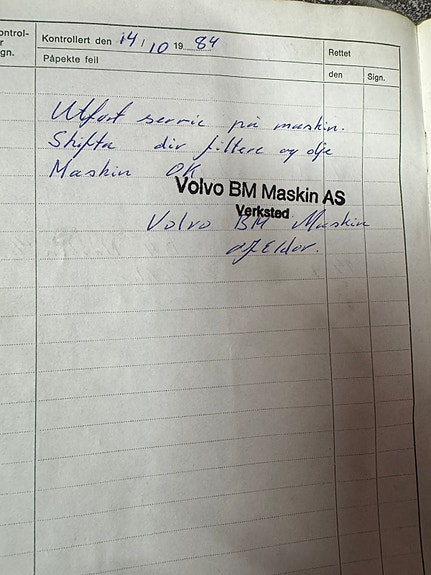 ontrol-
r
gn.
Kontrollert den 14/10 1984
Rettet
Påpekte feil
den
Sign.
Utført servic på maskin.
Skifta div filtere og olje
Maskin OK
Volvo BM Maskin AS
Verksted
Volvo BM Maskin